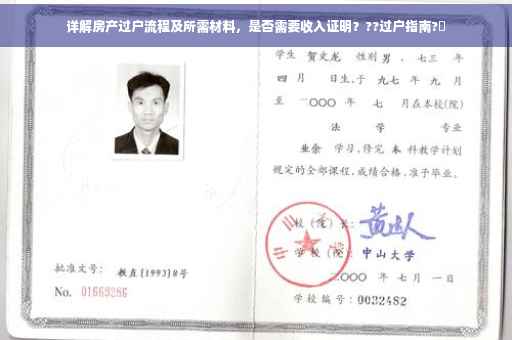 详解房产过户流程及所需材料，是否需要收入证明？??过户指南?
学生 贺文龙 性别 男 、七三 年
四 月 日生，于 九七 年 九 月
至 二〇〇〇 年 七 月在本校(院)
法 学 专业
业余 学习，修完 本 科教学计划
规定的全部课程，成绩合格，准予毕业。
校 (院) 长：
学 校 (院)： 中山大学
二〇〇〇 年 七 月 一 日
批准文号： 教直[1993]8号
No. 01669286
学校编号：0032482